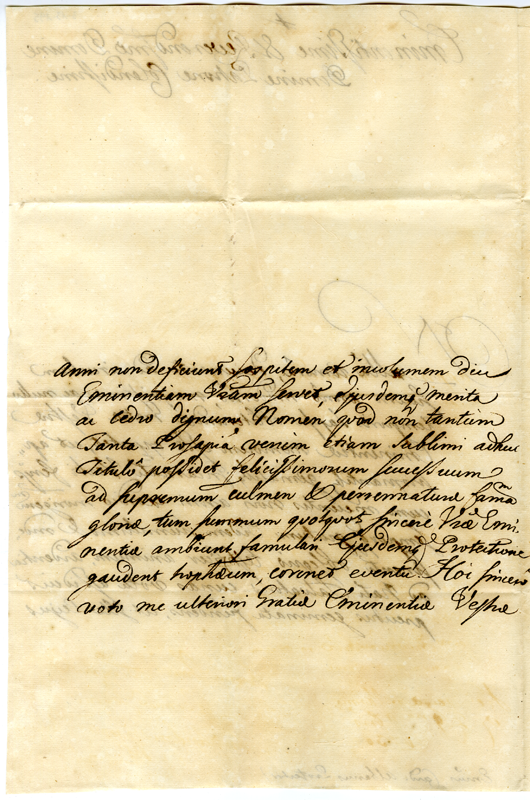 Anni non deficiunt sospitem et incolumem diu
Eminentiam Vram servet, ejusdemq merita
ac Cedro dignum Nomen, quod non tantum
Tanta Prosapia verum etiam sublimi adhuc
Titulo possidet felicissimorum successuum
ad supremum culmen & perennaturæ famæ
gloriæ, tum summum quotquot sincere Vræ Emi-
nentiæ ambiunt famulari Ejusdemq Protectione
gaudent trophæum, coronet eventu. Hoc sincero
voto me ulteriori Gratiæ Eminentiæ Vestræ